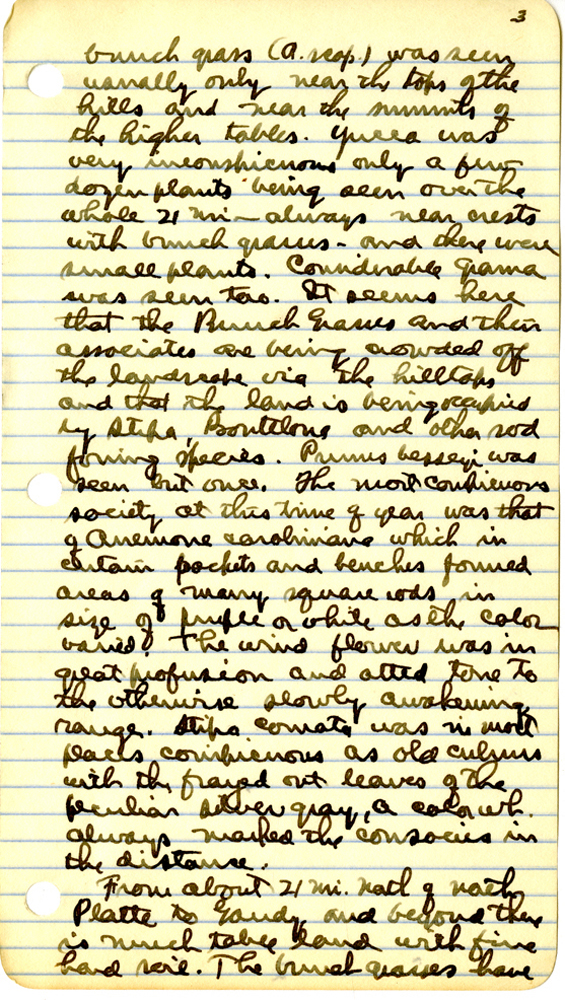 3
bunch grass (A. scop.) was seen
usually only near the tops of the
hills and near the summits of
the higher tables. Yucca was
very inconspicuous only a few
dozen plants being seen over the
whole 21 mi - always near crests
with bunch grasses - and there were
small plants. Considerable Grama
was seen too. It seems here
that the Bunch Grasses and their
associates are being crowded off
the landscape via the hilltops
and that the land is being occupied
by Stipa, Bouteloua and other sod
forming species. Prunus besseyi was
seen but once. The most conspicuous
society at this time of year was that
of Anemone caroliniana which in
certain pockets and benches formed
areas of many square rods in
size of purple or white as the color
varied. The wind flower was in
great profusion and tone to
the otherwise slowly awakening
range. Stipa comata was in most
places conspicuous as old culms
with the frayed out leaves of the
peculiar silver gray, a color wh.
always marked the consocies in
the distance.
From about 21 mi. north of north
Platte to Gandy and beyond there
is much table land with fine
hard soil. The bunch grasses have